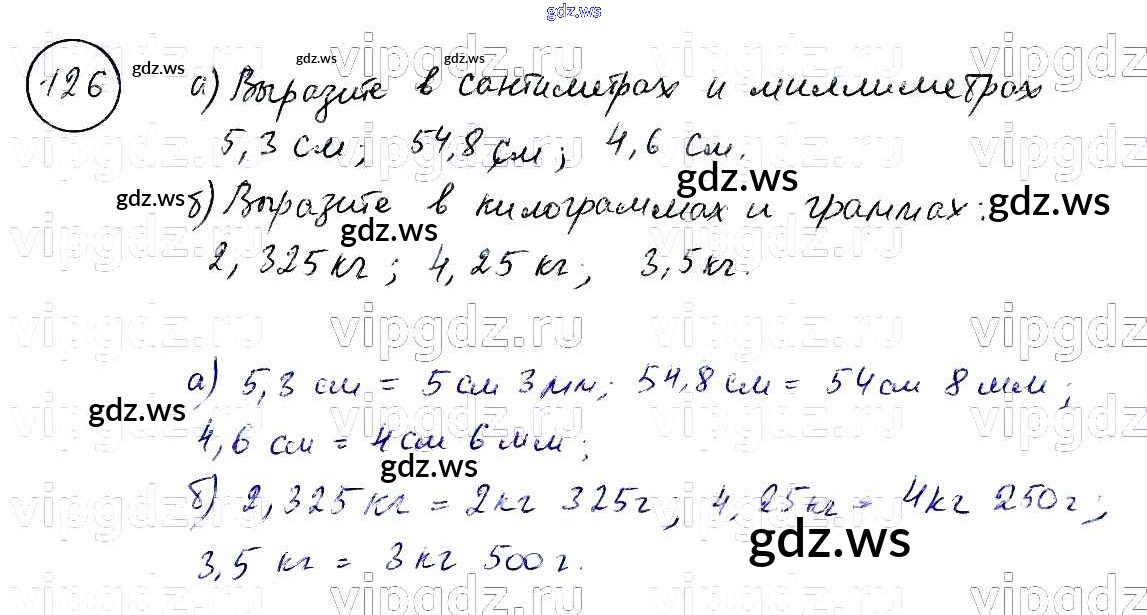 gdz.ws
126 gdz.ws gdz.ws gdz.ws
а) Выразите в сантиметрах и миллиметрах
5,3 см; 54,8 см; 4,6 см.
gdz.ws gdz.ws gdz.ws
б) Выразите в килограммах и граммах:
gdz.ws
2,325 кг; 4,25 кг; 3,5 кг.
vipgdz.ru vipgdz.ru vipgdz.ru
а) 5,3 см = 5 см 3 мм; 54,8 см = 54 см 8 мм;
gdz.ws
4,6 см = 4 см 6 мм;
gdz.ws
б) 2,325 кг = 2 кг 325 г; 4,25 кг = 4 кг 250 г;
gdz.ws
3,5 кг = 3 кг 500 г.